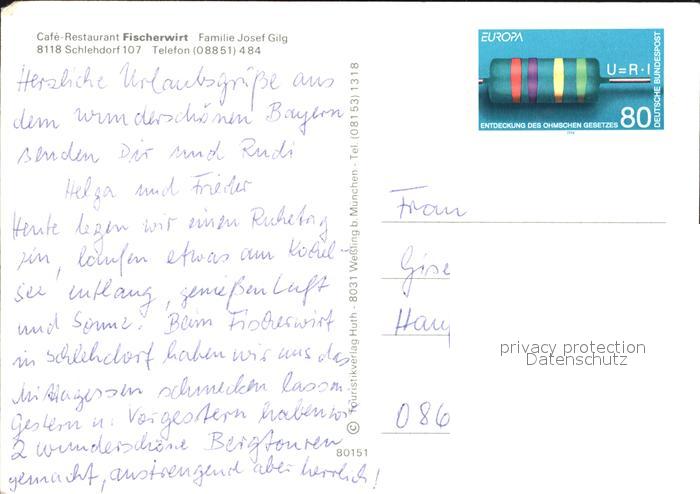 Café-Restaurant Fischerwirt Familie Josef Gilg
8118 Schlehdorf 107 Telefon (0 88 51) 4 84
Herzliche Urlaubsgrüße aus
dem wunderschönen Bayern
senden Dir und Rudi
Helga und Frieder
Heute legen wir einen Ruhetag
ein, laufen etwas am Kochel-
see entlang, genießen Luft
und Sonne. Beim Fischerwirt
in Schlehdorf haben wir uns das
Mittagessen schmecken lassen.
Gestern u. Vorgestern haben wir
2 wunderschöne Bergtouren
gemacht, anstrengend aber herrlich!
© Touristikverlag Huth · 8031 Weßling b. München · Tel. (0 81 53) 13 18
80151
EUROPA
U=R·I
ENTDECKUNG DES OHMSCHEN GESETZES 80
DEUTSCHE BUNDESPOST
Frau
privacy protection
Datenschutz
086